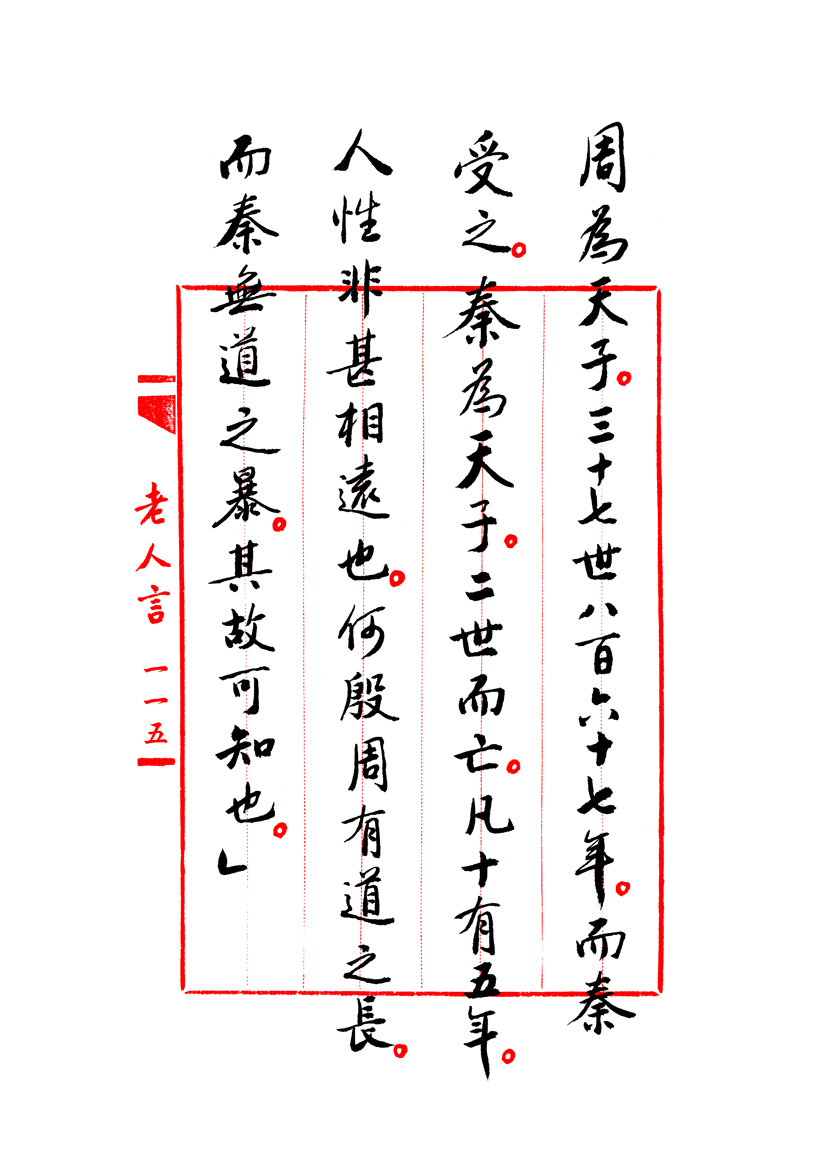 周為天子。三十七世八百六十七年。而秦
受之。秦為天子。二世而亡。凡十有五年。
人性非甚相遠也。何殷周有道之長。
而秦無道之暴。其故可知也。」
老人言 一一五